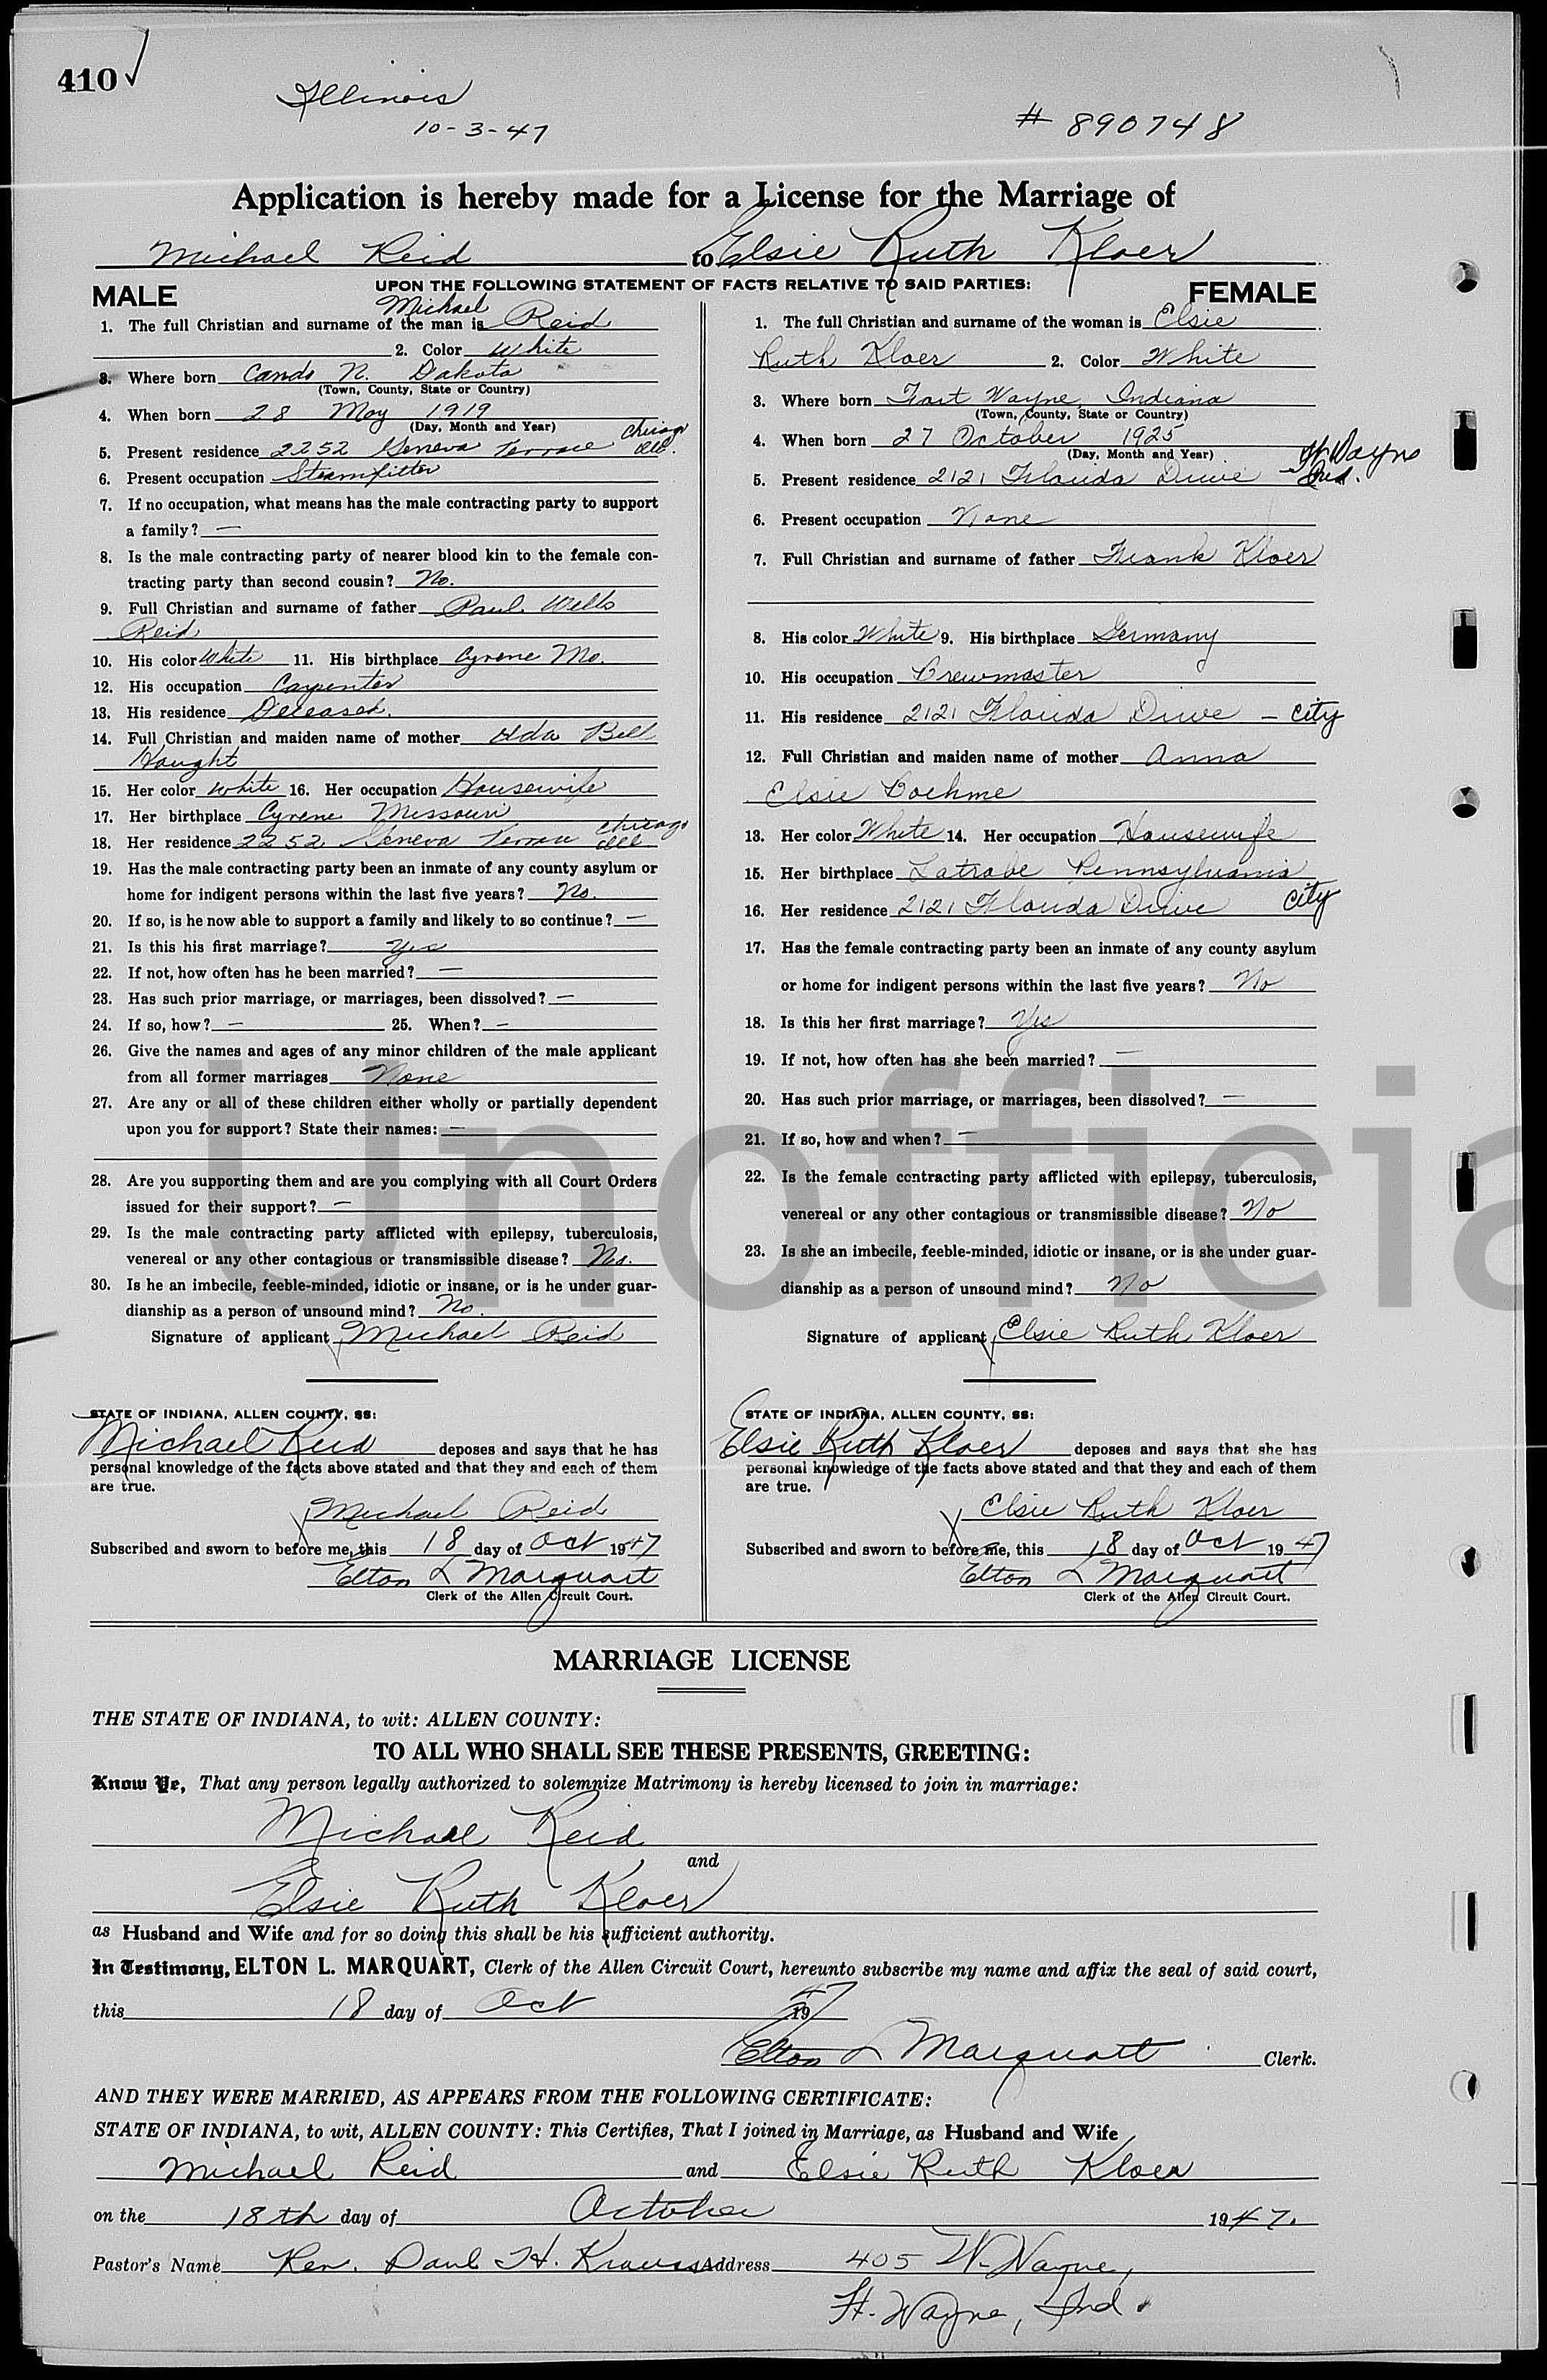 410
Illinois
10-3-47
# 890748
Application is hereby made for a License for the Marriage of
Michael Reid to Elsie Ruth Kloer
UPON THE FOLLOWING STATEMENT OF FACTS RELATIVE TO SAID PARTIES:
MALE
1. The full Christian and surname of the man is Michael Reid
2. Color White
3. Where born Cando N. Dakota
(Town, County, State or Country)
4. When born 28 May 1919
(Day, Month and Year)
5. Present residence 2252 Geneva Terrace Chicago Ill.
6. Present occupation Steamfitter
7. If no occupation, what means has the male contracting party to support
a family? —
8. Is the male contracting party of nearer blood kin to the female con-
tracting party than second cousin? No.
9. Full Christian and surname of father Paul Wells
Reid
10. His color White 11. His birthplace Cyrene Mo.
12. His occupation Carpenter
13. His residence Deceased.
14. Full Christian and maiden name of mother Ida Bell
Haught
15. Her color White 16. Her occupation Housewife
17. Her birthplace Cyrene Missouri
18. Her residence 2252 Geneva Terrace Chicago Ill
19. Has the male contracting party been an inmate of any county asylum or
home for indigent persons within the last five years? No.
20. If so, is he now able to support a family and likely to so continue? —
21. Is this his first marriage? Yes
22. If not, how often has he been married? —
23. Has such prior marriage, or marriages, been dissolved? —
24. If so, how? — 25. When? —
26. Give the names and ages of any minor children of the male applicant
from all former marriages None
27. Are any or all of these children either wholly or partially dependent
upon you for support? State their names: —
28. Are you supporting them and are you complying with all Court Orders
issued for their support? —
29. Is the male contracting party afflicted with epilepsy, tuberculosis,
venereal or any other contagious or transmissible disease? No.
30. Is he an imbecile, feeble-minded, idiotic or insane, or is he under guar-
dianship as a person of unsound mind? No.
Signature of applicant Michael Reid
STATE OF INDIANA, ALLEN COUNTY, SS:
Michael Reid deposes and says that he has
personal knowledge of the facts above stated and that they and each of them
are true.
Michael Reid
Subscribed and sworn to before me, this 18 day of Oct 1947
Elton L Marquart
Clerk of the Allen Circuit Court.
FEMALE
1. The full Christian and surname of the woman is Elsie
Ruth Kloer 2. Color White
3. Where born Fort Wayne Indiana
(Town, County, State or Country)
4. When born 27 October 1925
(Day, Month and Year)
5. Present residence 2121 Florida Drive - Ft Wayne Ind.
6. Present occupation None
7. Full Christian and surname of father Frank Kloer
8. His color White 9. His birthplace Germany
10. His occupation Brewmaster
11. His residence 2121 Florida Drive - City
12. Full Christian and maiden name of mother Anna
Elsie Boehme
13. Her color White 14. Her occupation Housewife
15. Her birthplace Latrobe Pennsylvania
16. Her residence 2121 Florida Drive City
17. Has the female contracting party been an inmate of any county asylum
or home for indigent persons within the last five years? No
18. Is this her first marriage? Yes
19. If not, how often has she been married? —
20. Has such prior marriage, or marriages, been dissolved? —
21. If so, how and when? —
22. Is the female contracting party afflicted with epilepsy, tuberculosis,
venereal or any other contagious or transmissible disease? No
23. Is she an imbecile, feeble-minded, idiotic or insane, or is she under guar-
dianship as a person of unsound mind? No
Signature of applicant Elsie Ruth Kloer
STATE OF INDIANA, ALLEN COUNTY, SS:
Elsie Ruth Kloer deposes and says that she has
personal knowledge of the facts above stated and that they and each of them
are true.
Elsie Ruth Kloer
Subscribed and sworn to before me, this 18 day of Oct 1947
Elton L Marquart
Clerk of the Allen Circuit Court.
Unofficia
MARRIAGE LICENSE
THE STATE OF INDIANA, to wit: ALLEN COUNTY:
TO ALL WHO SHALL SEE THESE PRESENTS, GREETING:
Know Ye, That any person legally authorized to solemnize Matrimony is hereby licensed to join in marriage:
Michael Reid
and
Elsie Ruth Kloer
as Husband and Wife and for so doing this shall be his sufficient authority.
In Testimony, ELTON L. MARQUART, Clerk of the Allen Circuit Court, hereunto subscribe my name and affix the seal of said court,
this 18 day of Oct 1947
Elton L Marquart Clerk.
AND THEY WERE MARRIED, AS APPEARS FROM THE FOLLOWING CERTIFICATE:
STATE OF INDIANA, to wit, ALLEN COUNTY: This Certifies, That I joined in Marriage, as Husband and Wife
Michael Reid and Elsie Ruth Kloer
on the 18th day of October 1947.
Pastor's Name Rev. Paul H. Krauss Address 405 W. Wayne,
Ft. Wayne, Ind.